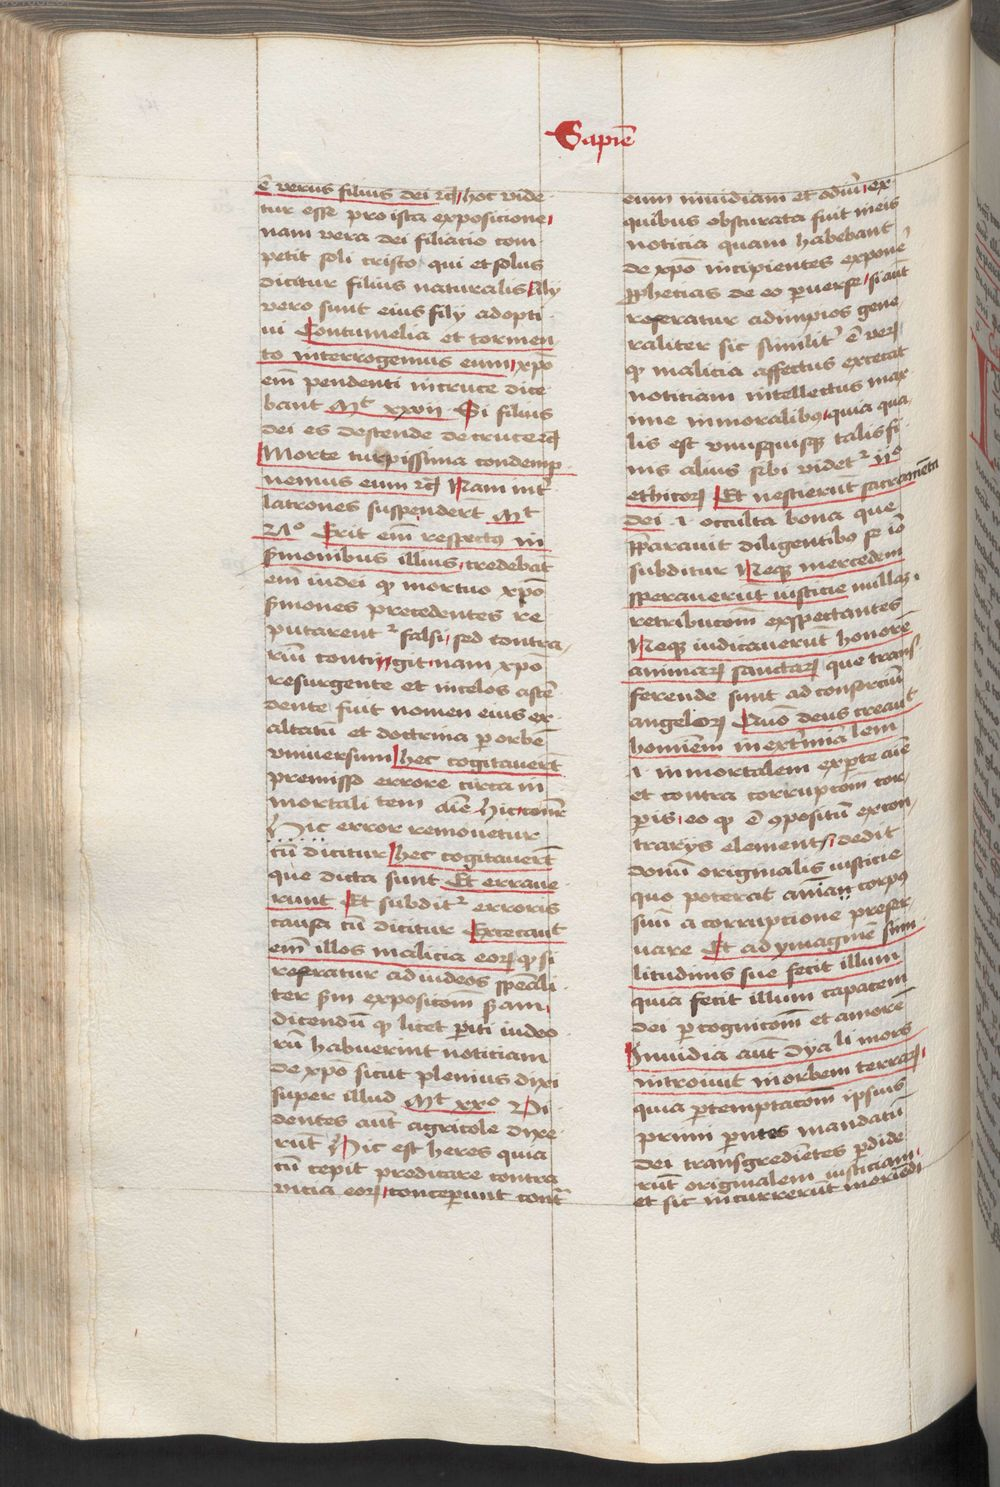 Sapiē
ē verus filius dei rc̄ hoc vide
tur esse pro ista exposicione
nam vera dei filiacio com
petit soli cristo qui et solus
dicitur filius naturalis Alij
vero sunt eius filij adopti
ui Contumelia et tormen
to interrogemus eum xp̄o
em̄ pendenti in cruce dice
bant Mt xxvii Si filius
dei es descende de cruce rc̄
Morte turpissima condemp
nemus eum rc̄ Nam int̄
latrones suspendert Mt
Erit em̄ respectꝰ in
s̄monibus illius credebāt
em̄ iudei ꝙ mortuo xp̄o
s̄mones precedentes re
putarentᵉ falsi sed contra
riū contingit nam xp̄o
resurgente et in celos ascē
dente fuit nomen eius ex
altatū et doctrina ꝑ orbē
vniuersum hec cogitauerūt
premisso errore circa in
mortali tem aīe
Hic error remouetur
cū dicitur hec cogitauerūt
que dicta sunt Et erraue
runt Et subditᵉ erroris
causa cū dicitur Excecauit
em̄ illos malicia eorꝝ ꝙ si
referatur ad iudeos sp̄eāli
ter s̄m exposicōm
dicendū ꝙ licet ꝑiti iudeo
rū habuerint noticiam
de xp̄o sicut plenius dixi
super illud Mt xxº Vi
dentes aūt agricole dixe
rūt Hic est heres quia
cū cepit predicare contra
vicia eorꝝ conceperunt cont̄
eum inuidiam et odiū ex
quibus obscurata fuit in eis
noticia quam habebant
de xp̄o incipientes exponē
ꝓphecias de eo ꝑuerse si aūt
referatur ad impios gene
raliter sic similit̄ ē verꝝ
ꝙ malicia affectus excecat
noticiam intellectus max
ime in moralibꝰ quia qua
lis est vnusquisqꝫ talis fi
nis alius sibi videtᵉ iiº
ethicorꝝ Et nescierūt sacramēta
dei .i. occulta bona que
p̄parauit diligentibꝰ se iō
subditur Neqꝫ mercedem
sperauerūt iusticie nullaꝫ
retribucōm exspectantes
Neqꝫ iudicauerūt honorē
animarꝝ sanctarꝝ que trans
ferende sunt ad consorciū
angelorꝝ Quō deus creauit
hominem inext̄mīa lem
.i. inmortalem ex ꝑte aīe
et contra corrupcōm cor
ꝑis eo ꝙ ē ꝯpositū ex con
trarijs elementis dedit
donū originalis iusticie
quo poterat corpꝰ
suū a corrupcione preser
uare Et ad ymaginē sim
litudinis sue fecit illum
quia fecit illum capacem
dei ꝑ cognicōm et amorē
Inuidia aūt dyaboli mors
introiuit in orbem terrarꝝ
quia ꝑ temptacōm ipsius
primi ꝑntes mandatū
dei transgredientes ꝑdide
rūt originalem iusticiam
et sic incurrerūt moriēdi